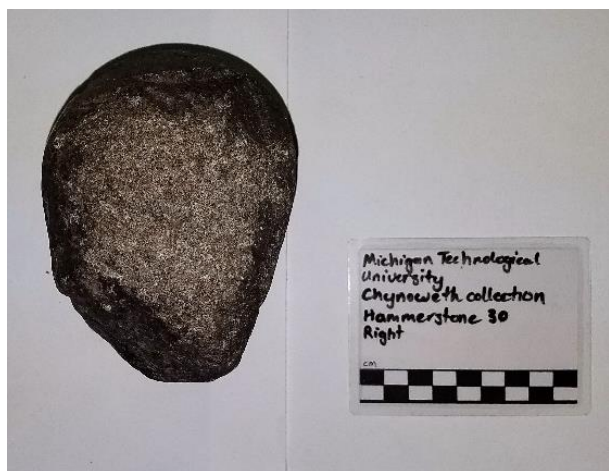 Michigan Technological
University
Chynoweth collection
Hammerstone 30
Right
cm